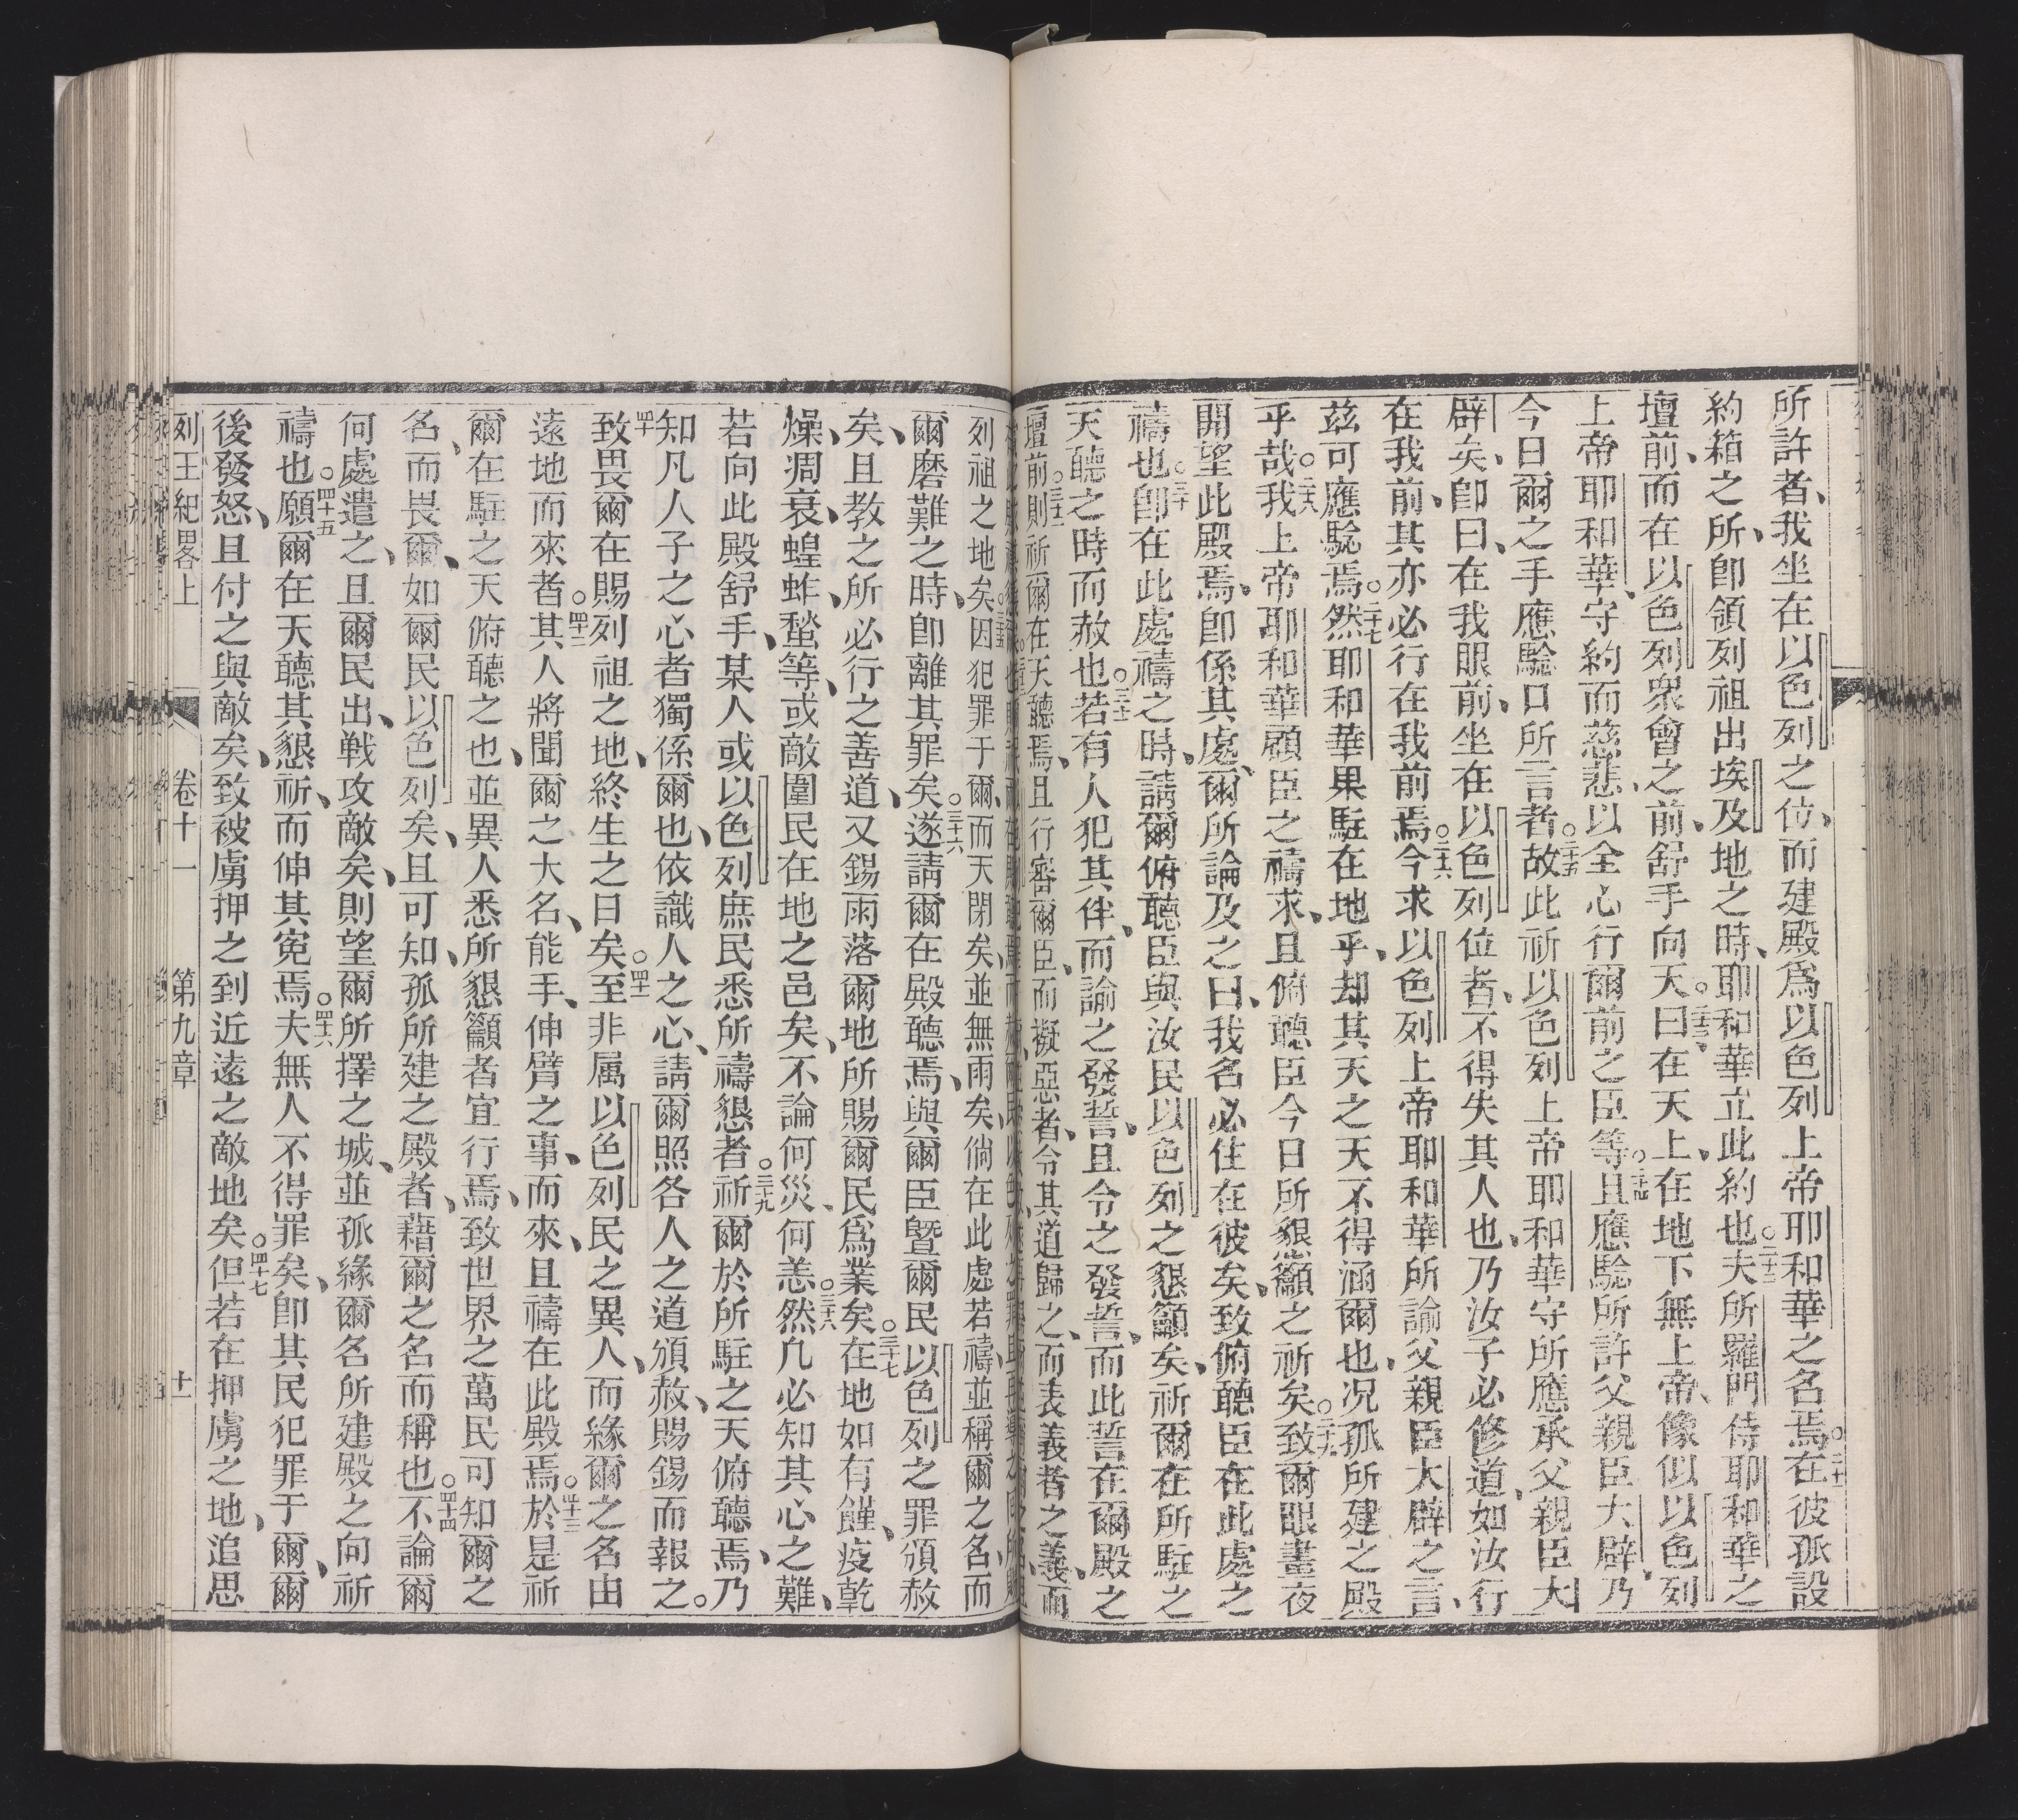 所許者、我坐在以色列之位、而建殿爲以色列上帝耶和華之名焉。二十一在彼孤設
約箱之所、卽領列祖出埃及地之時、耶和華立此約也。二十二夫所羅門侍耶和華之
壇前、而在以色列衆會之前、舒手向天。二十三曰在天上、在地下無上帝、像似以色列
上帝耶和華、守約而慈悲、以全心行爾前之臣等。二十四且應驗所許父親臣大辟、乃
今日爾之手應驗口所言者。二十五故此祈以色列上帝耶和華守所應承父親臣大
辟矣、卽曰、在我眼前、坐在以色列位者、不得失其人也、乃汝子必修道、如汝行
在我前、其亦必行在我前焉。二十六今求以色列上帝耶和華所諭父親臣大辟之言、
茲可應驗焉。二十七然耶和華果駐在地乎、却其天之天不得涵爾也、况孤所建之殿
乎哉。二十八我上帝耶和華顧臣之禱求、且俯聽臣今日所懇籲之祈矣。二十九致爾眼晝夜
開望此殿焉、卽係其處、爾所論及之曰、我名必住在彼矣、致俯聽臣在此處之
禱也。三十卽在此處禱之時、請爾俯聽臣與汝民以色列之懇籲矣、祈爾在所駐之
天聽之時而赦也。三十一若有人犯其伴、而諭之發誓、且令之發誓、而此誓在爾殿之
壇前。三十二則祈爾在天聽焉、且行審爾臣、而擬惡者、令其道歸之、而表義者之義、而
列祖之地矣。三十五因犯罪于爾、而天閉矣、並無雨矣、倘在此處若禱、並稱爾之名、而
爾磨難之時、卽離其罪矣。三十六遂請爾在殿聽焉、與爾臣曁爾民以色列之罪頒赦
矣、且教之所必行之善道、又錫雨落爾地所賜爾民爲業矣。三十七在地如有饉、疫、乾
燥、凋衰、蝗蚱、蝥等、或敵圍民在地之邑矣、不論何災、何恙。三十八然凡必知其心之難、
若向此殿舒手、某人或以色列庶民悉所禱懇者。三十九祈爾於所駐之天俯聽焉、乃
知凡人子之心者獨係爾也、依識人之心、請爾照各人之道頒赦、賜錫而報之。
四十致畏爾在賜列祖之地、終生之日矣。四十一至非属以色列民之異人、而緣爾之名由
遠地而來者。四十二其人將聞爾之大名、能手、伸臂之事、而來、且禱在此殿焉。四十三於是祈
爾在駐之天俯聽之也、並異人悉所懇籲者宜行焉、致世界之萬民可知爾之
名、而畏爾、如爾民以色列矣、且可知、孤所建之殿者、藉爾之名而稱也。四十四不論爾
何處遣之、且爾民出、戦攻敵矣、則望爾所擇之城、並孤緣爾名所建殿之向祈
禱也。四十五願爾在天聽其懇祈、而伸其寃焉。四十六夫無人不得罪矣、卽其民犯罪于爾、爾
後發怒、且付之與敵矣、致被虜押之到近遠之敵地矣。四十七但若在押虜之地、追思
列王紀畧上 卷十一 第九章 十一